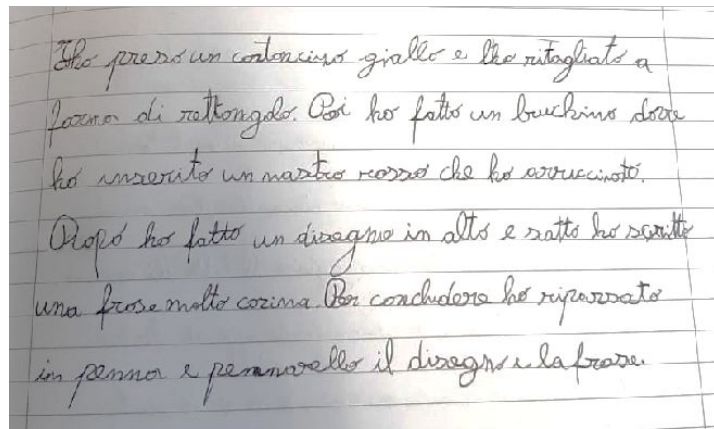 Ho preso un cartoncino giallo e lho ritagliato a
forma di rettangolo. Poi ho fatto un buchino dove
ho inserito un nastro rosso che ho arricciato.
Dopo ho fatto un disegno in alto e sotto ho scritto
una frase molto carina. Per concludere ho ripassato
in penna e pennarello il disegno e la frase.